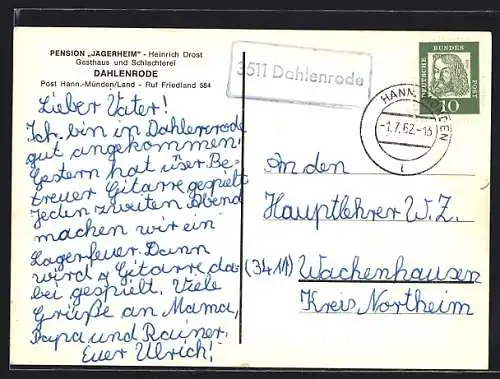 PENSION „JÄGERHEIM" - Heinrich Drost
Gasthaus und Schlachterei
DAHLENRODE
Post Hann.-Münden/Land - Ruf Friedland 584
3511 Dahlenrode
DEUTSCHE BUNDESPOST
10
HANN. MÜNDEN
-1.7.62.-13
Lieber Vater!
Ich bin in Dahlenrode
gut angekommen.
Gestern hat user Be-
treuer Gitarre gespielt
Jeden zweiten Abend
machen wir ein
Lagerfeuer. Dann
wird Gitarre da-
bei gespielt. Viele
Grüße an Mama,
Papa und Rainer.
Euer Ulrich!
An den
Hauptlehrer W. Z.
(3411) Wachenhausen
Kreis Northeim